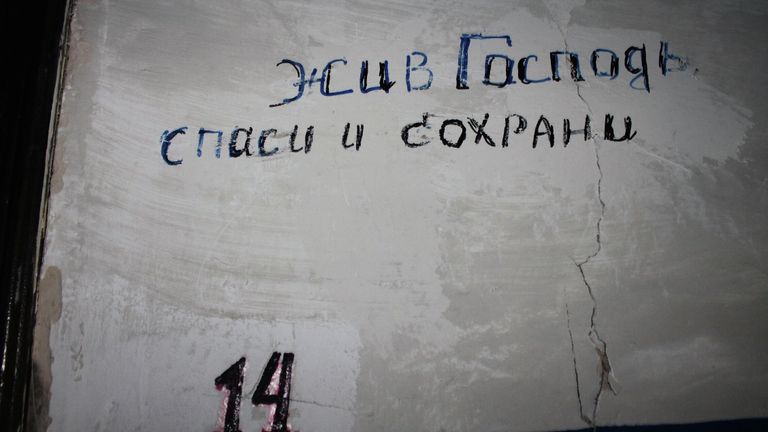 жив Господь
спаси и сохрани
14